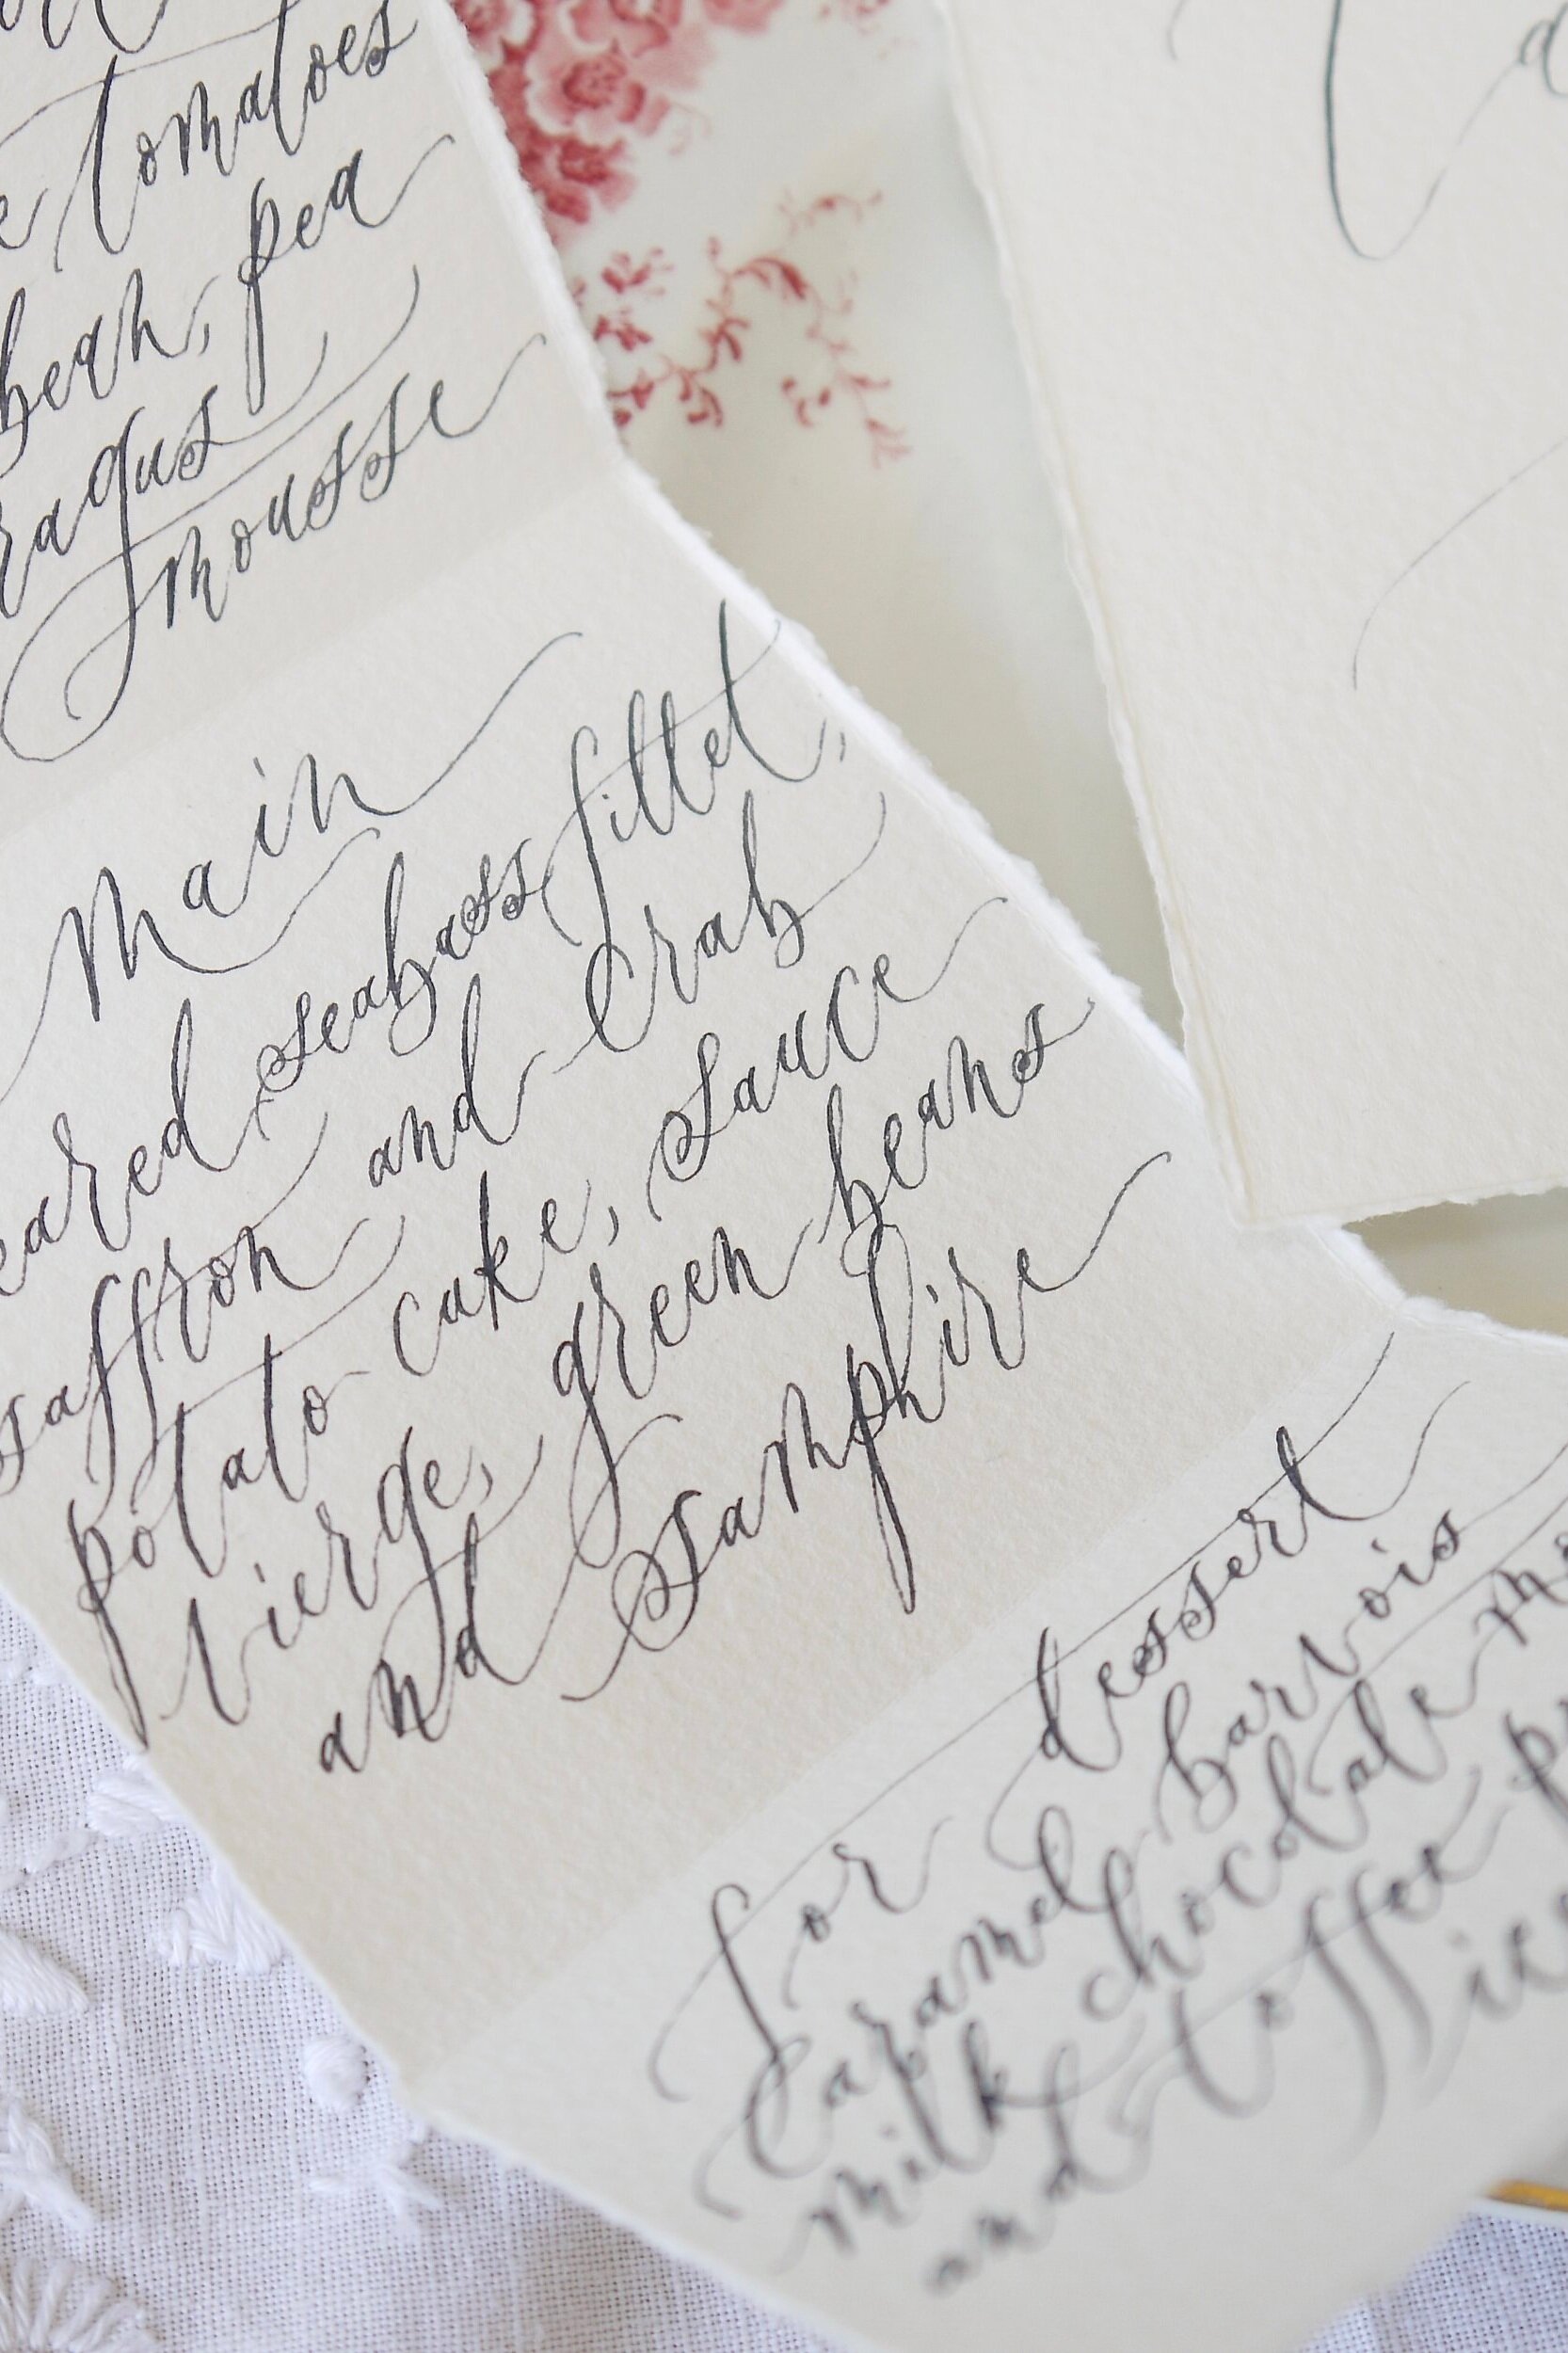 tomatoes
bean, pea
mousse
Main
seabass fillet,
saffron and Crab
potato cake, Sauce
vierge, green beans
and Samphire
for dessert
Caramel barvois
milk chocolate
and toffee